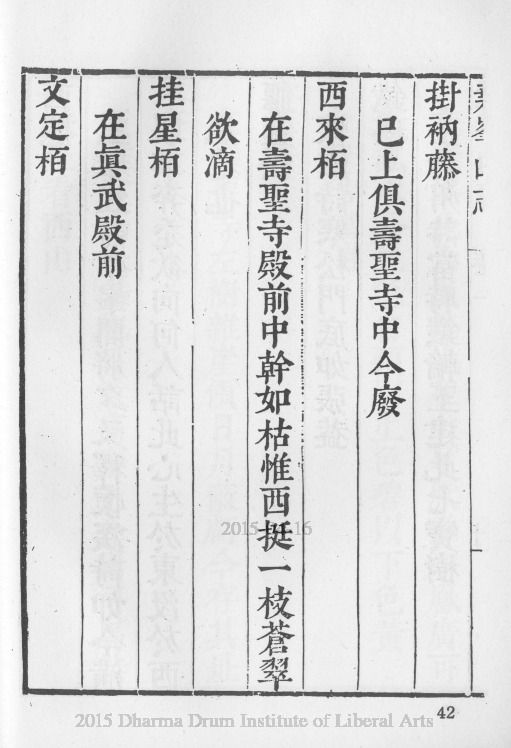 掛衲藤
已上俱壽聖寺中今廢
西來栢
在壽聖寺殿前中幹如枯惟西挺一枝蒼翠
欲滴
挂星栢
在眞武殿前
文定栢
42
2015 Dharma Drum Institute of Liberal Arts